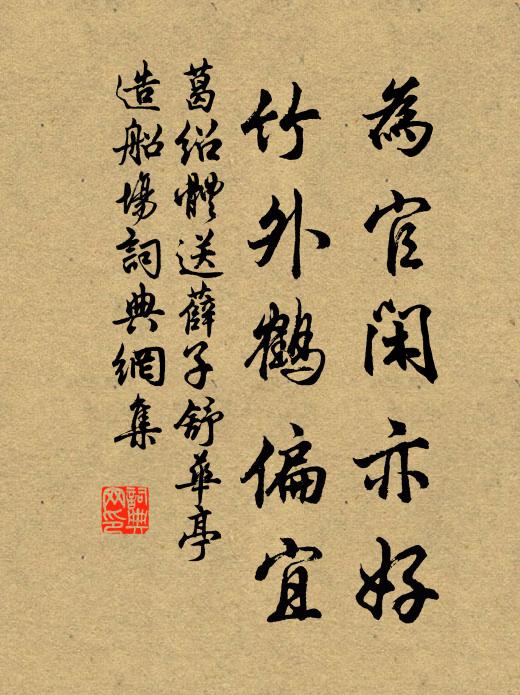 為官閑亦好
竹外鶴偏宜
葛紹體送薛子舒華亭
造船場詞典網集
詞典
网印